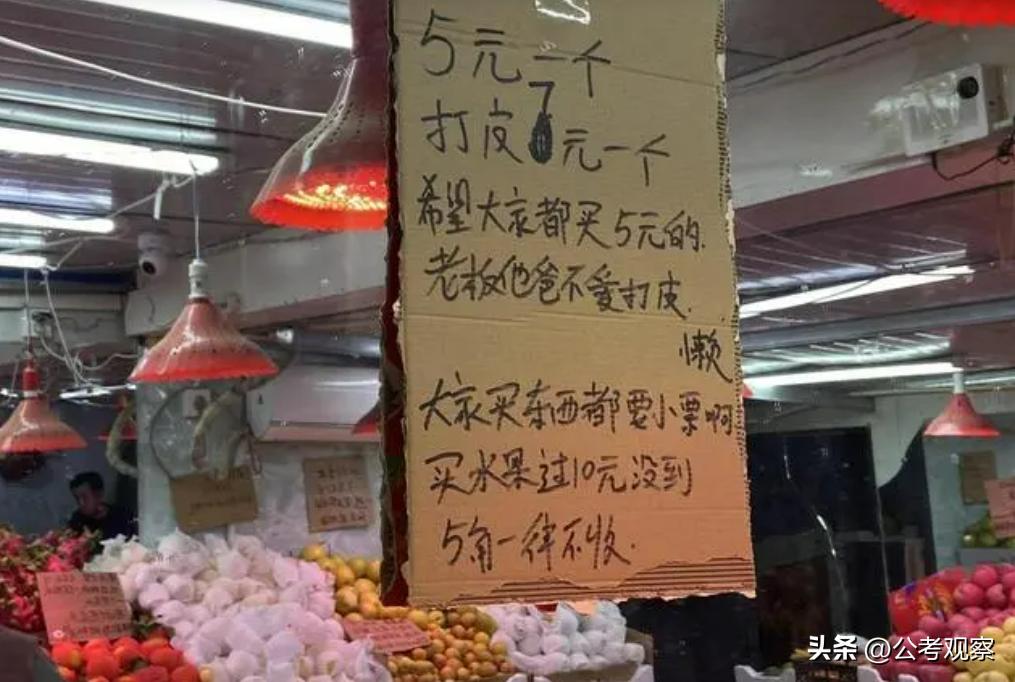 5元一个
打皮7元一个
希望大家都买5元的.
老板他爸不爱打皮.
懒
大家买东西都要小票啊
买水果过10元没到
5角一律不收.
头条 @公考观察